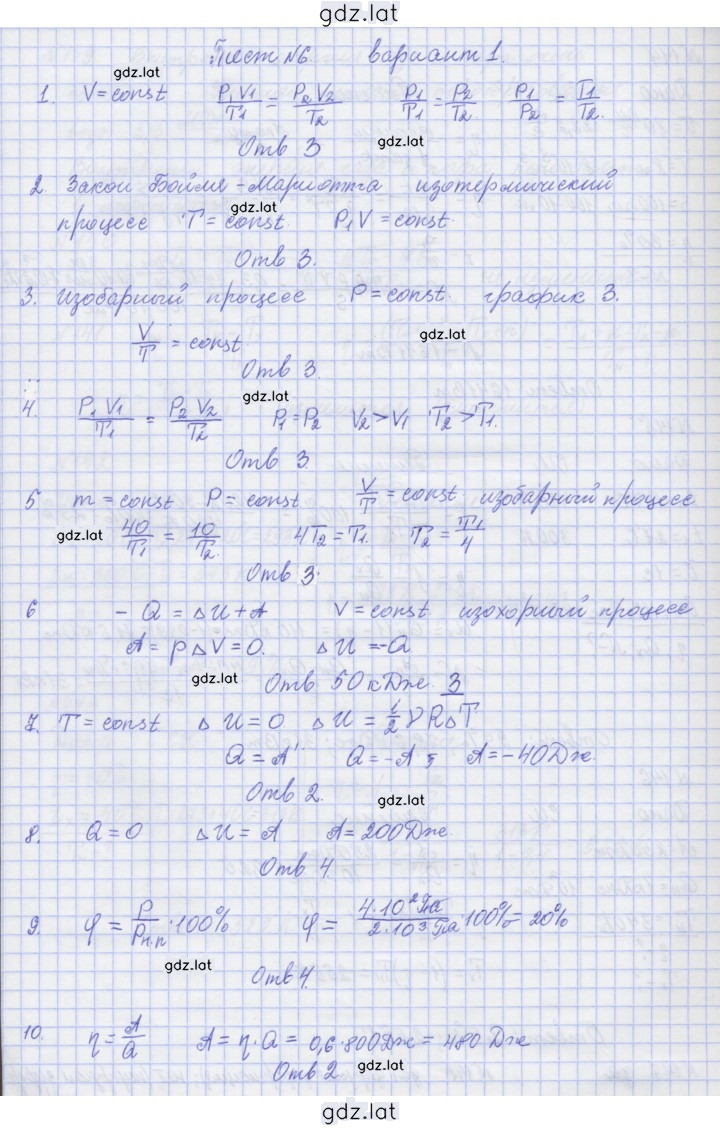 gdz.lat
Тест №6. вариант 1.
gdz.lat
1. V=const P₁V₁/T₁ = P₂V₂/T₂ P₁/T₁ = P₂/T₂ P₁/P₂ = T₁/T₂.
gdz.lat
Отв 3
2. Закон Бойля-Мариотта изотермический
gdz.lat
процесс T=const. P₁V=const.
Отв 3.
3. Изобарный процесс P=const. график 3.
V/T = const.
gdz.lat
Отв 3.
gdz.lat
4. P₁V₁/T₁ = P₂V₂/T₂ P₁=P₂ V₂>V₁ T₂>T₁.
Отв 3.
5 m=const P=const V/T=const изобарный процесс
gdz.lat
40/T₁ = 10/T₂. 4T₂=T₁. T₂=T₁/4
Отв 3.
6 -Q=ΔU+A V=const. изохорный процесс
A=pΔV=0. ΔU=-Q
gdz.lat
Отв 50кДж. 3
7. T=const ΔU=0 ΔU=i/2 νRΔT
Q=A' Q=-A; A=-40Дж.
Отв 2.
gdz.lat
8. Q=0 ΔU=A A=200Дж.
Отв 4.
9. φ=P/Pн.п·100% φ= 4·10²Па/2·10³Па·100%=20%
gdz.lat
Отв 4.
10. η=A/Q A=η·Q=0,6·800Дж=480Дж
gdz.lat
Отв 2
gdz.lat